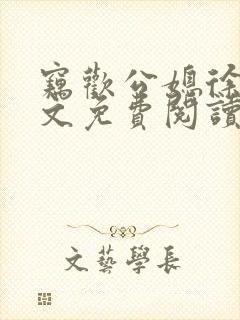 竊歡公媳徐
文免費閱讀
文藝學長